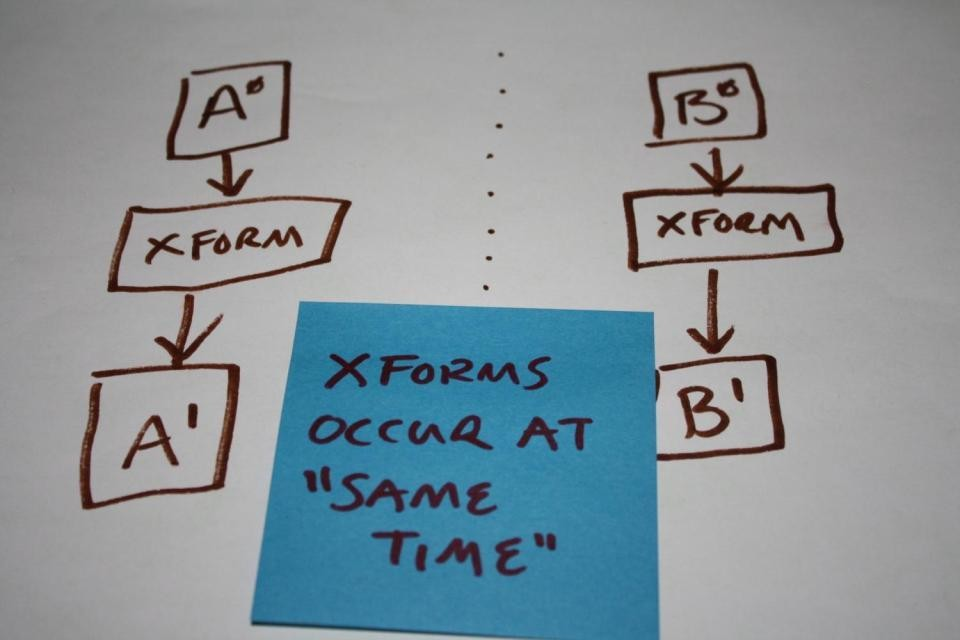 A⁰
B⁰
XFORM
XFORM
A'
B'
XFORMS
OCCUR AT
"SAME
TIME"